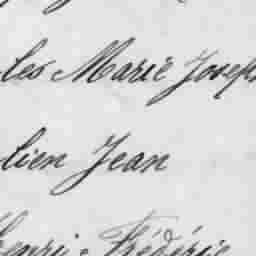 les Marie Joseph
lien Jean
Henri - Frédéric